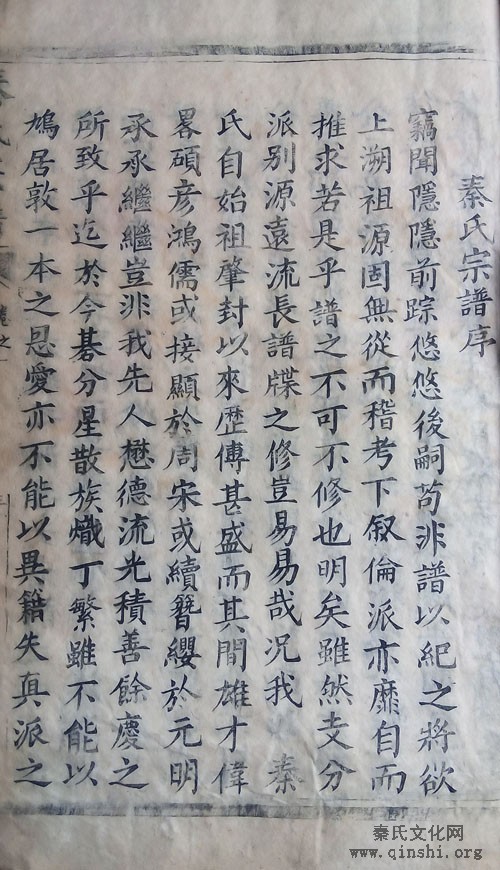 秦氏宗譜序
竊聞隱隱前踪悠悠後嗣苟非譜以紀之將欲
上溯祖源固無從而稽考下叙倫派亦靡自而
推求若是乎譜之不可不修也明矣雖然支分
派别源遠流長譜牒之修豈易易哉况我 秦
氏自始祖肇封以來歷傳甚盛而其間雄才偉
畧碩彦鴻儒或接顯於周宋或續簪纓於元明
承承繼繼豈非我先人懋德流光積善餘慶之
所致乎迄於今碁分星散族熾丁繁雖不能以
鳩居敦一本之恩愛亦不能以異籍失真派之
秦氏文化网
www.qinshi.org